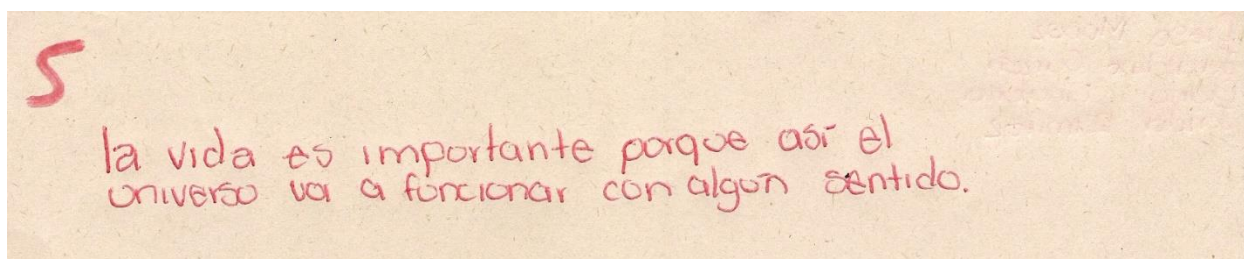 5
la vida es importante porque así el
universo va a funcionar con algún sentido.